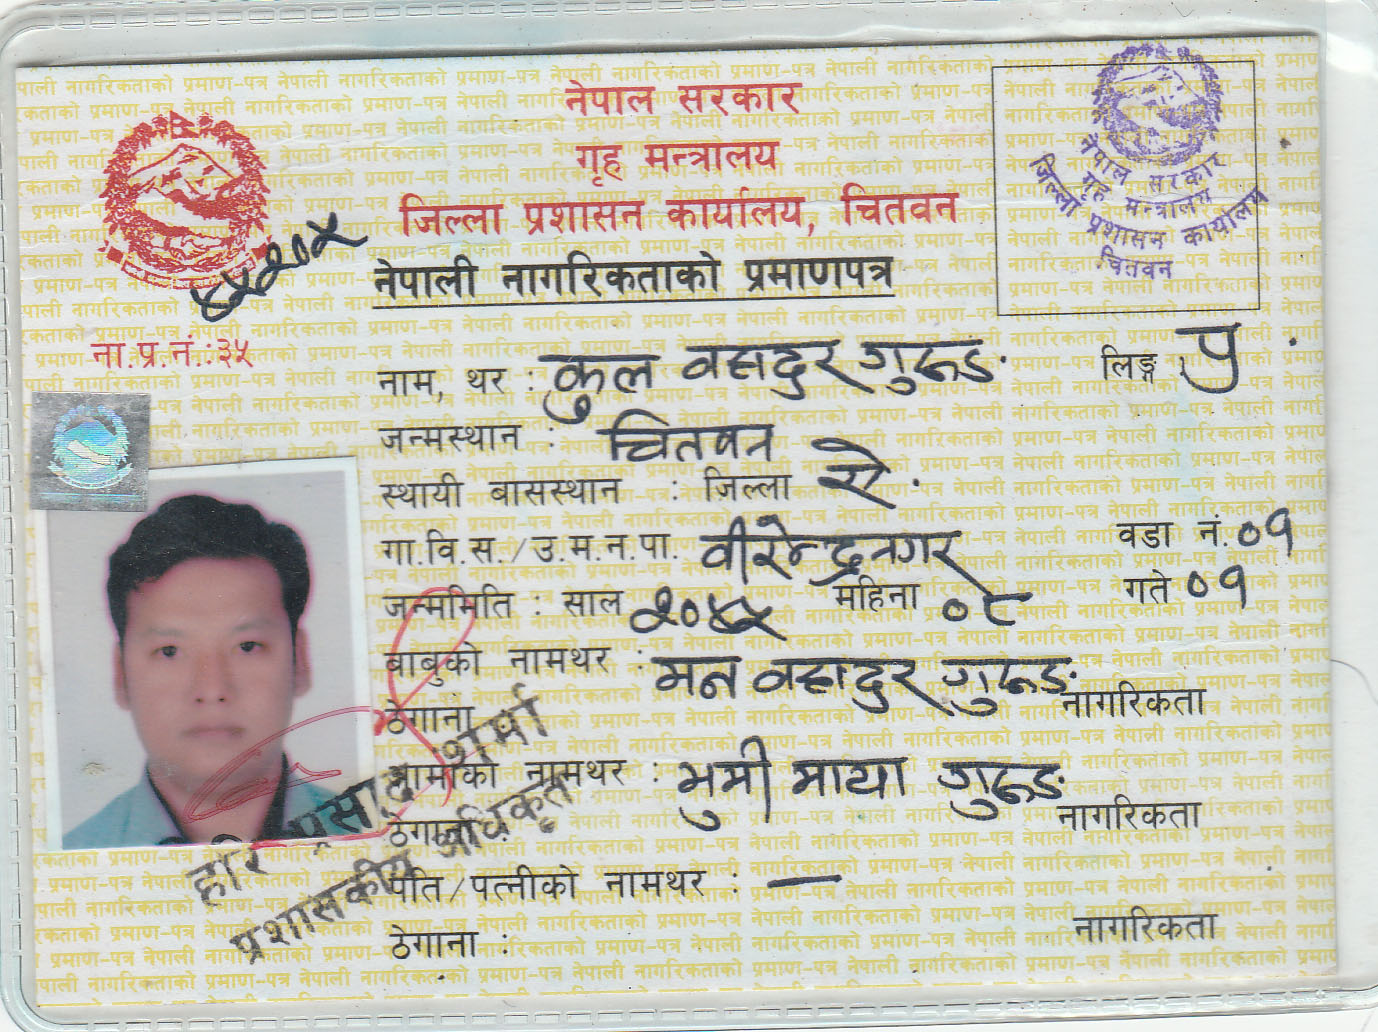 नेपाल सरकार
गृह मन्त्रालय
जिल्ला प्रशासन कार्यालय, चितवन
नेपाली नागरिकताको प्रमाणपत्र
नेपाल सरकार
गृह मन्त्रालय
जिल्ला प्रशासन कार्यालय
चितवन
ना.प्र.नं.:३५
नाम, थर : कुल बहादुर गुरुङ लिङ्ग पु
जन्मस्थान : चितवन
स्थायी बासस्थान : जिल्ला ऐ.
गा.वि.स./उ.म.न.पा. वीरेन्द्रनगर वडा नं. ०१
जन्ममिति : साल २०४५ महिना ०८ गते ०१
बाबुको नामथर : मन बहादुर गुरुङ
ठेगाना नागरिकता
आमाको नामथर : भुमी माया गुरुङ
ठेगाना नागरिकता
पति/पत्नीको नामथर : —
ठेगाना : नागरिकता
हरि प्रसाद शर्मा
प्रशासकीय अधिकृत